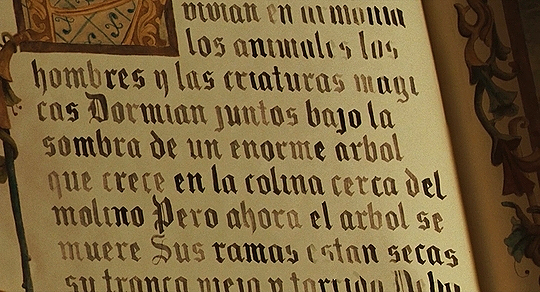 vivian en armonia
los animales los
hombres y las criaturas magi
cas Dormian juntos bajo la
sombra de un enorme arbol
que crece en la colina cerca del
molino Pero ahora el arbol se
muere Sus ramas estan secas
su tronco viejo y torcido